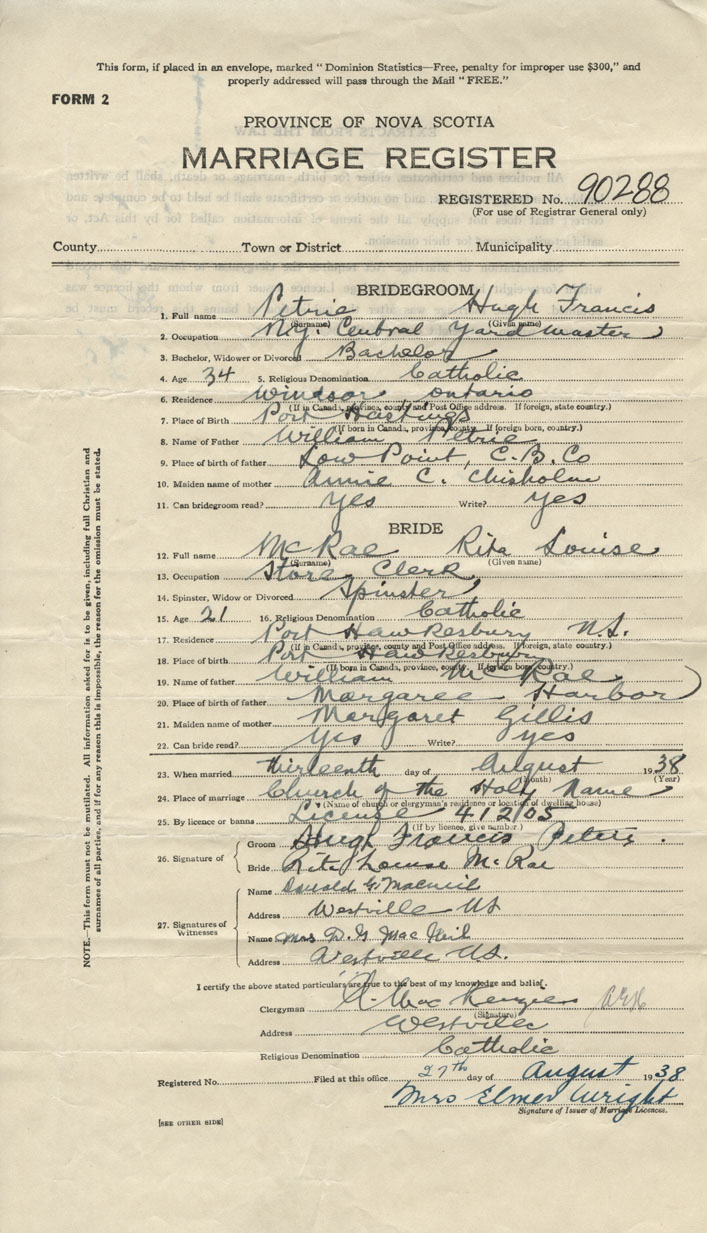 This form, if placed in an envelope, marked "Dominion Statistics—Free, penalty for improper use $300," and
properly addressed will pass through the Mail "FREE."
FORM 2
PROVINCE OF NOVA SCOTIA
MARRIAGE REGISTER
REGISTERED No. 90288
(For use of Registrar General only)
County Town or District Municipality
BRIDEGROOM
1. Full name Petrie Hugh Francis
(Surname) (Given name)
2. Occupation N.Y. Central Yard Master
3. Bachelor, Widower or Divorced Bachelor
4. Age 34 5. Religious Denomination Catholic
6. Residence Windsor Ontario
(If in Canada, province, county and Post Office address. If foreign, state country.)
7. Place of Birth Port Hastings
(If born in Canada, province, county. If foreign born, country.)
8. Name of Father William Petrie
9. Place of birth of father Low Point, C.B. Co
10. Maiden name of mother Annie C. Chisholm
11. Can bridegroom read? yes Write? yes
BRIDE
12. Full name McRae Rita Louise
(Surname) (Given name)
13. Occupation Store Clerk
14. Spinster, Widow or Divorced Spinster
15. Age 21 16. Religious Denomination Catholic
17. Residence Port Hawkesbury N.S.
(If in Canada, province, county and Post Office address. If foreign, state country.)
18. Place of birth Port Hawkesbury
(If born in Canada, province, county. If foreign born, country.)
19. Name of father William McRae
20. Place of birth of father Margaree Harbor
21. Maiden name of mother Margaret Gillis
22. Can bride read? yes Write? yes
23. When married thirteenth day of August 1938
(Month) (Year)
24. Place of marriage Church of the Holy Name
(Name of church or clergyman's residence or location of dwelling house)
25. By licence or banns License 41205
(If by licence, give number.)
26. Signature of
Groom Hugh Francis Petrie.
Bride Rita Louise McRae
27. Signatures of Witnesses
Name Donald G. MacNeil
Address Westville NS
Name Mrs D. G. MacNeil
Address Westville N.S.
I certify the above stated particulars are true to the best of my knowledge and belief.
Clergyman MacKenzie
(Signature)
Address Westville
Religious Denomination Catholic
Registered No. Filed at this office 27th day of August 1938
Mrs Elmer Wright
Signature of Issuer of Marriage Licences.
[SEE OTHER SIDE]
NOTE.—This form must not be mutilated. All information asked for is to be given, including full Christian and
surnames of all parties, and if for any reason this is impossible, the reason for the omission must be stated.